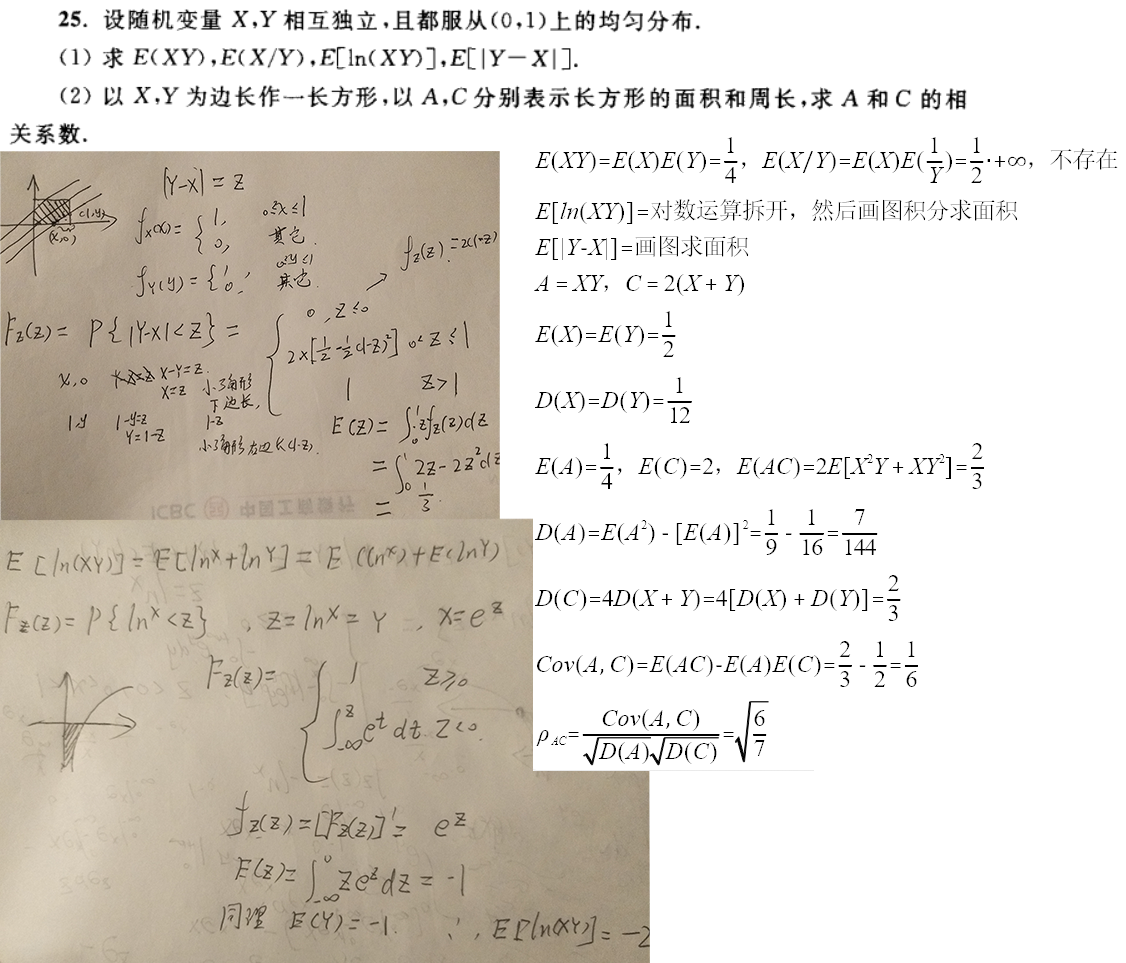 25. 设随机变量 X,Y 相互独立,且都服从(0,1)上的均匀分布.
(1) 求 E(XY),E(X/Y),E[ln(XY)],E[|Y-X|].
(2) 以 X,Y 为边长作一长方形,以 A,C 分别表示长方形的面积和周长,求 A 和 C 的相
关系数.
|Y-X| = Z
f_X(x) = { 1, 0≤x≤1
0, 其它.
f_Y(y) = { 1, 0≤y≤1
0, 其它.
f_Z(z) = 2(1-z)
F_Z(z) = P{|Y-X|<Z} = { 0, Z≤0
2×[1/2 - 1/2(1-z)²] 0<Z≤1
1 Z>1
x,0 X-Y=Z
X=Z
小三角形
下边长,
1-Z
1,y 1-y=z
Y=1-Z
小三角形右边长(1-Z).
E(Z) = ∫₀¹ z f_Z(z) dz
= ∫₀¹ 2z - 2z² dz
= 1/3
ICBC 中国工商银行
E[ln(XY)] = E[lnX + lnY] = E(lnX) + E(lnY)
F_Z(z) = P{lnX < z}, Z = lnX = Y, X = e^z
F_Z(z) = { 1 Z≥0
∫_{-∞}^z e^t dt Z<0.
f_Z(z) = [F_Z(z)]' = e^z
E(Z) = ∫_{-∞}^0 z e^z dz = -1
同理 E(Y) = -1. ∴, E[ln(XY)] = -2
E(XY)=E(X)E(Y)=1/4, E(X/Y)=E(X)E(1/Y)=1/2·+∞, 不存在
E[ln(XY)]=对数运算拆开, 然后画图积分求面积
E[|Y-X|]=画图求面积
A = XY, C = 2(X + Y)
E(X)=E(Y)=1/2
D(X)=D(Y)=1/12
E(A)=1/4, E(C)=2, E(AC)=2E[X²Y + XY²]=2/3
D(A)=E(A²) - [E(A)]²=1/9 - 1/16 = 7/144
D(C)=4D(X + Y)=4[D(X) + D(Y)]=2/3
Cov(A, C)=E(AC)-E(A)E(C)=2/3 - 1/2 = 1/6
ρ_AC = Cov(A, C)/(√D(A)√D(C)) = √(6/7)